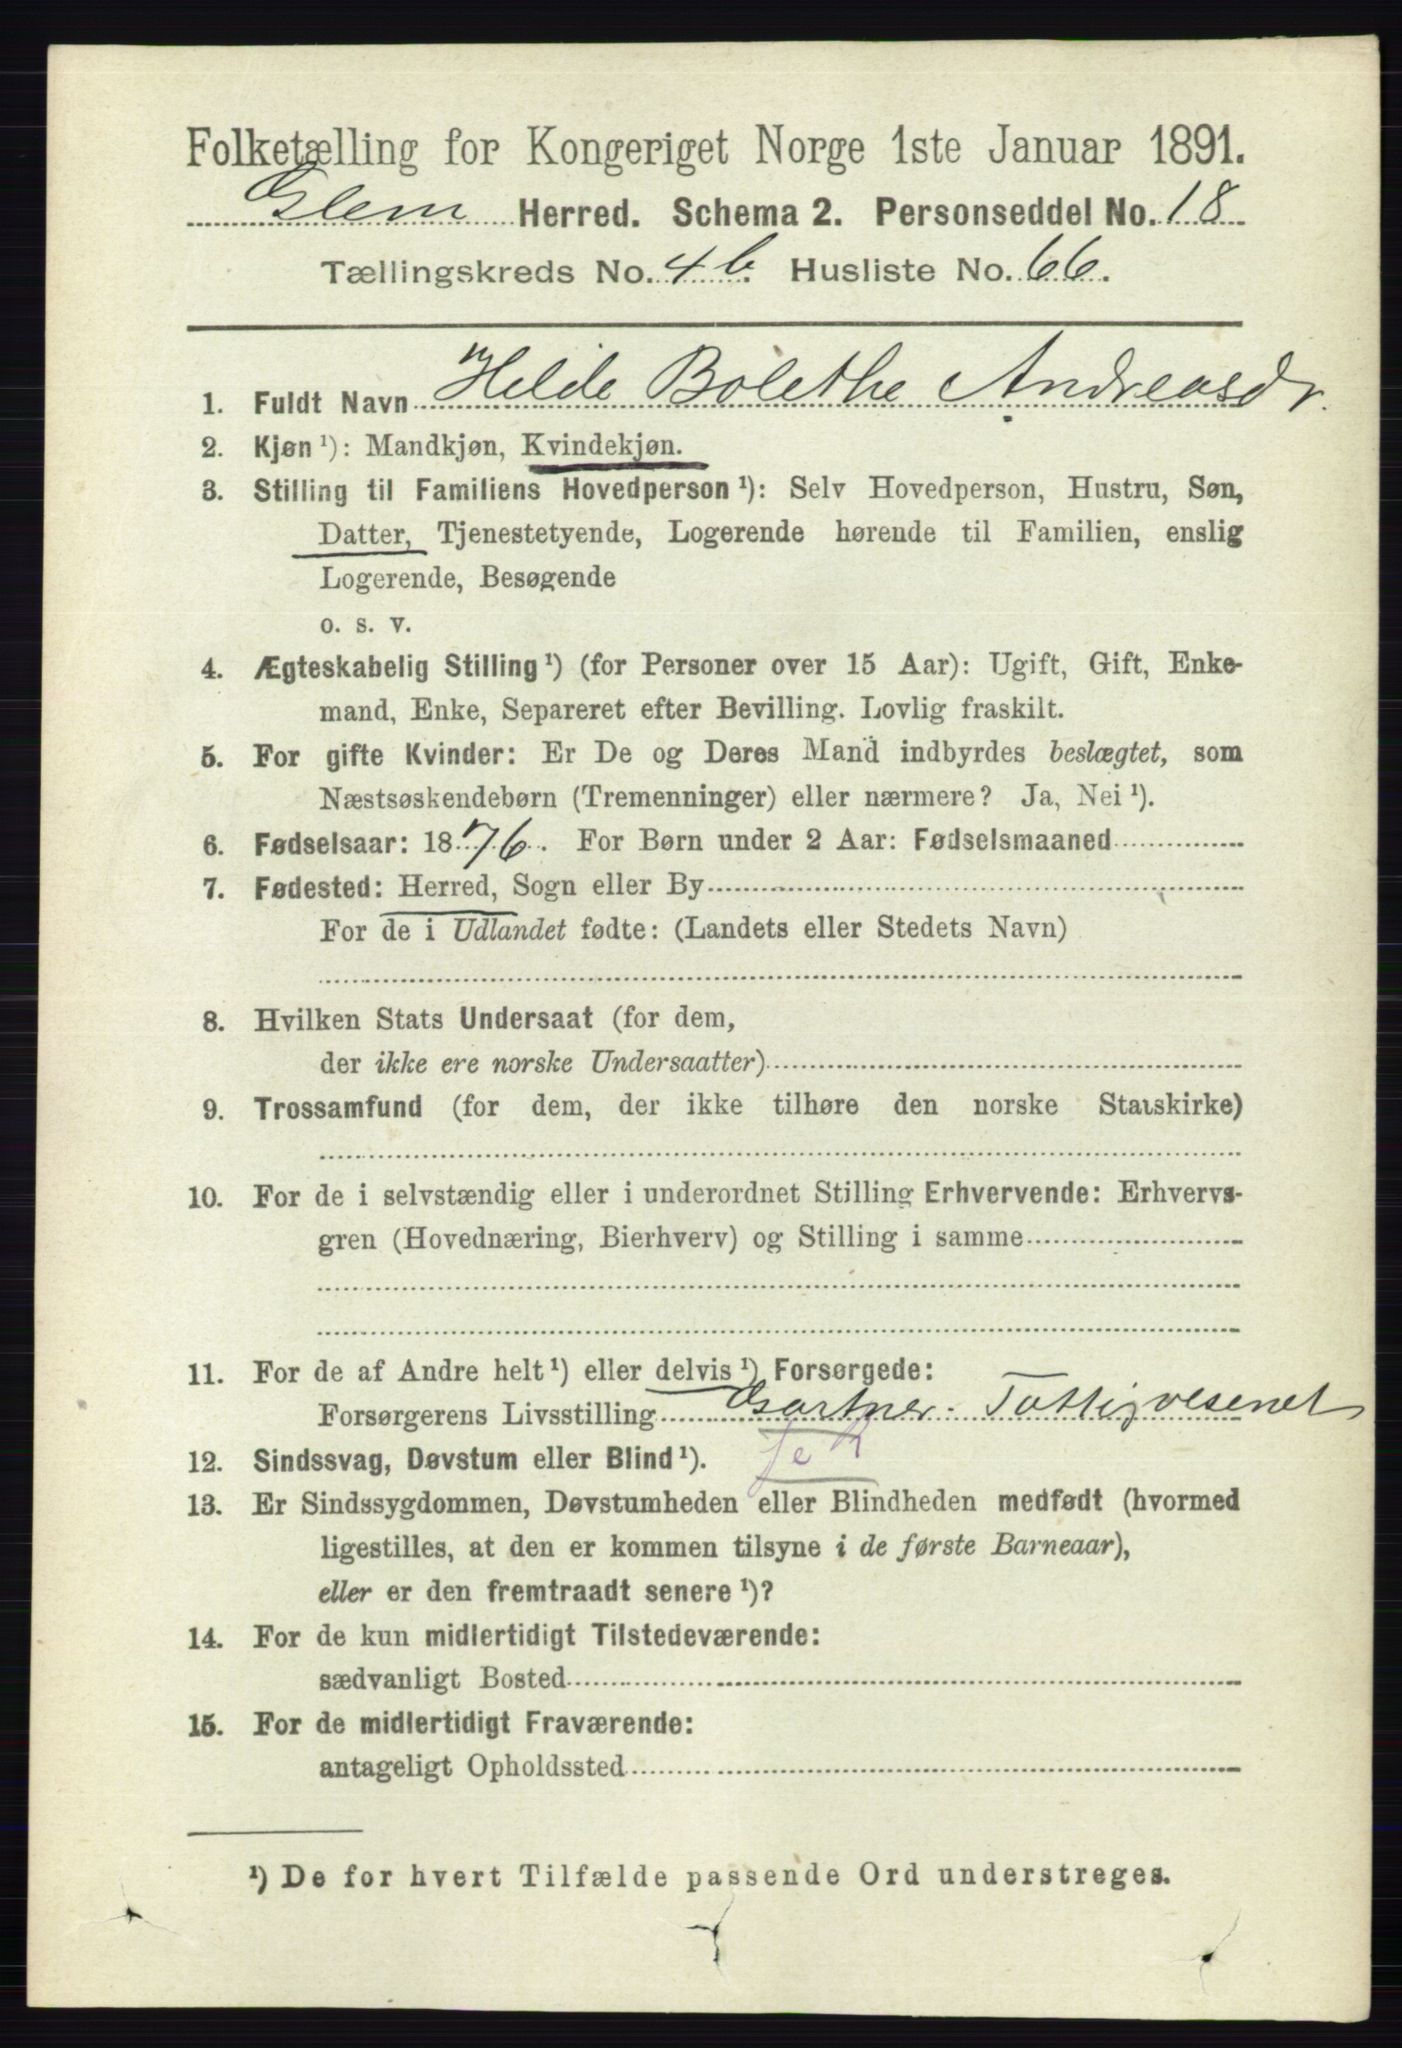 Folketælling for Kongeriget Norge 1ste Januar 1891.
Glem Herred. Schema 2. Personseddel No. 18
Tællingskreds No. 4 b. Husliste No. 66.
1. Fuldt Navn Helde Bolethe Andreasdr.
2. Kjøn ¹): Mandkjøn, Kvindekjøn.
3. Stilling til Familiens Hovedperson ¹): Selv Hovedperson, Hustru, Søn,
Datter, Tjenestetyende, Logerende hørende til Familien, enslig
Logerende, Besøgende
o. s. v.
4. Ægteskabelig Stilling ¹) (for Personer over 15 Aar): Ugift, Gift, Enke-
mand, Enke, Separeret efter Bevilling. Lovlig fraskilt.
5. For gifte Kvinder: Er De og Deres Mand indbyrdes beslægtet, som
Næstsøskendebørn (Tremenninger) eller nærmere? Ja, Nei ¹).
6. Fødselsaar: 1876. For Børn under 2 Aar: Fødselsmaaned
7. Fødested: Herred, Sogn eller By
For de i Udlandet fødte: (Landets eller Stedets Navn)
8. Hvilken Stats Undersaat (for dem,
der ikke ere norske Undersaatter)
9. Trossamfund (for dem, der ikke tilhøre den norske Statskirke)
10. For de i selvstændig eller i underordnet Stilling Erhvervende: Erhvervs-
gren (Hovednæring, Bierhverv) og Stilling i samme
11. For de af Andre helt ¹) eller delvis ¹) Forsørgede:
Forsørgerens Livsstilling Gartner. Fattigvesenet
12. Sindssvag, Døvstum eller Blind ¹).
13. Er Sindssygdommen, Døvstumheden eller Blindheden medfødt (hvormed
ligestilles, at den er kommen tilsyne i de første Barneaar),
eller er den fremtraadt senere ¹)?
14. For de kun midlertidigt Tilstedeværende:
sædvanligt Bosted
15. For de midlertidigt Fraværende:
antageligt Opholdssted
¹) De for hvert Tilfælde passende Ord understreges.